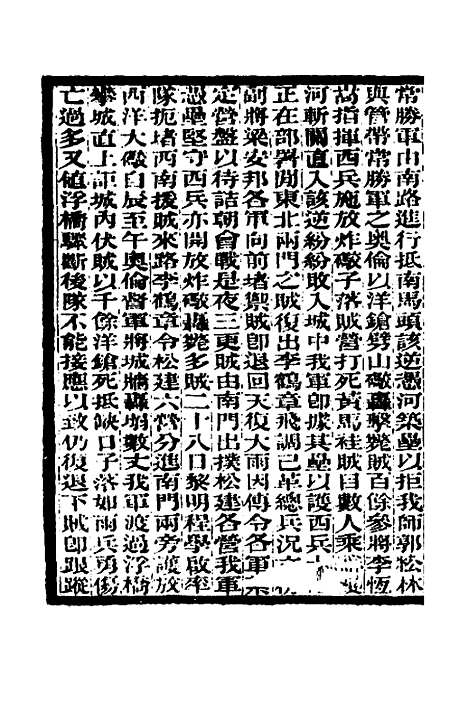 常勝軍由南路進行抵南馬頭該逆憑河築壘以拒我師郭松林
與管帶常勝軍之奧倫以洋鎗劈山礮轟擊斃賊百餘參將李恆
嵩指揮西兵施放炸礮子落賊營打死黃馬褂賊目數人乘
河斬關直入該逆紛紛敗入城中我軍卽據其壘以護西兵
正在部署間東北兩門之賊復出李鶴章飛調已革總兵况
副將梁安邦各軍向前堵禦賊卽退回天復大雨因傳令各軍
定營盤以待詰朝會戰是夜三更賊由南門出撲松建各營我軍
憑壘堅守西兵亦開放炸礮轟斃多賊二十八日黎明程學啟率
隊扼堵西南援賊來路李鶴章令松建六營分進南門兩旁護放
西洋大礮自辰至午奧倫督軍將城牆轟塌數丈我軍渡過浮橋
攀城直上詎城內伏賊以千餘洋鎗死抵缺口子落如雨兵勇傷
亡過多又値浮橋驟斷後隊不能接應以致仍復退下賊卽跟蹤